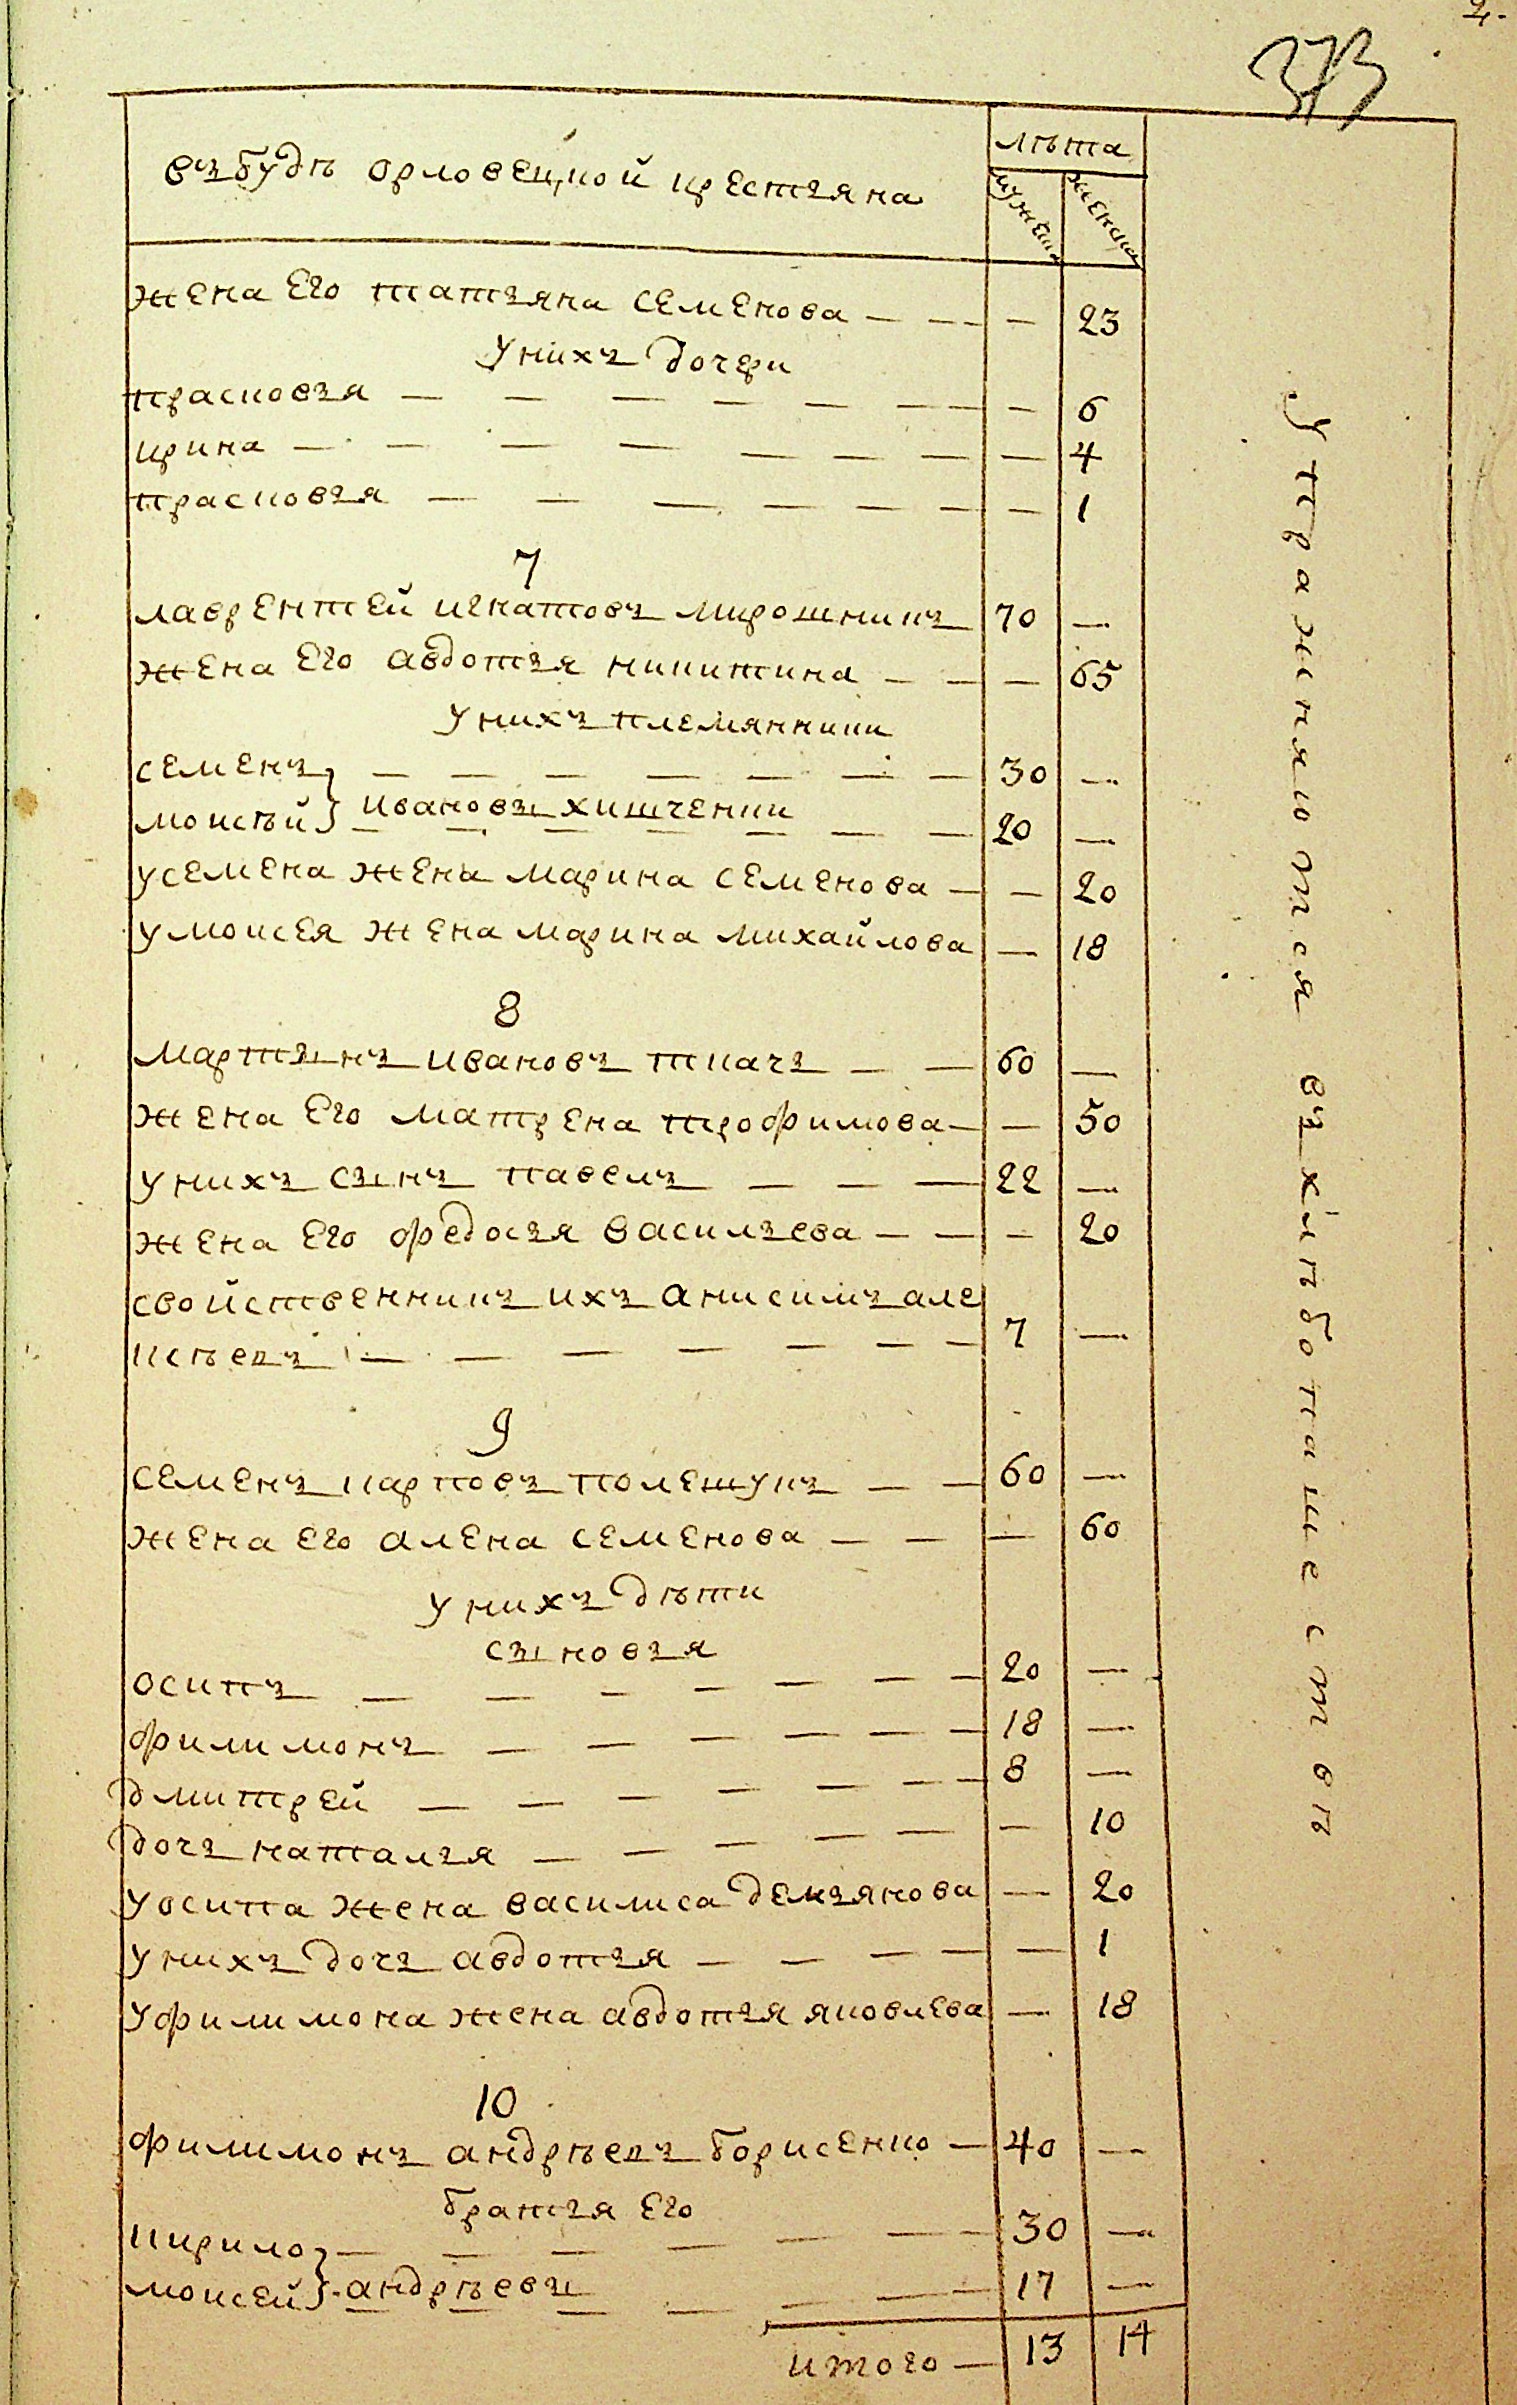 2.
373
въ будѣ орловецкой крестьяна
лѣта
мужеска
женска
жена Его татьяна семенова — — — — 23
у нихъ дочери
прасковья — — — — — — — — 6
ирина — — — — — — — — 4
прасковья — — — — — — — — 1
7
лаврентей игнатовъ мирошникъ 70 —
жена Его авдотья никитина — — — 65
у нихъ племянники
семенъ — — — — — — — 30 —
моисѣй } ивановы хишченки 20 —
у семена жена марина семенова — — 20
у моисея жена марина михайлова — 18
8
мартынъ ивановъ ткачь — — 60 —
жена Его матрена трофимова — — 50
у нихъ сынъ павелъ — — — 22 —
жена Его федосья васильева — — — 20
свойственникъ ихъ анисимъ але
ксѣевъ — — — — — — 7 —
9
семенъ карповъ полешукъ — — 60 —
жена Его алена семенова — — — 60
у нихъ дѣти
сыновья
осипъ — — — — — — — 20 —
филимонъ — — — — — — 18 —
дмитрей — — — — — — 8 —
дочь наталья — — — — — — 10
у осипа жена василиса демьянова — 20
у нихъ дочь авдотья — — — — — 1
у филимона жена авдотья яковлева — 18
10
филимонъ андрѣевъ борисенко — 40 —
братья Его
кирило — — — — — — 30 —
моисей } андрѣевы — — — 17 —
итого — 13 14
Упражняются въ хлѣбопашествѣ